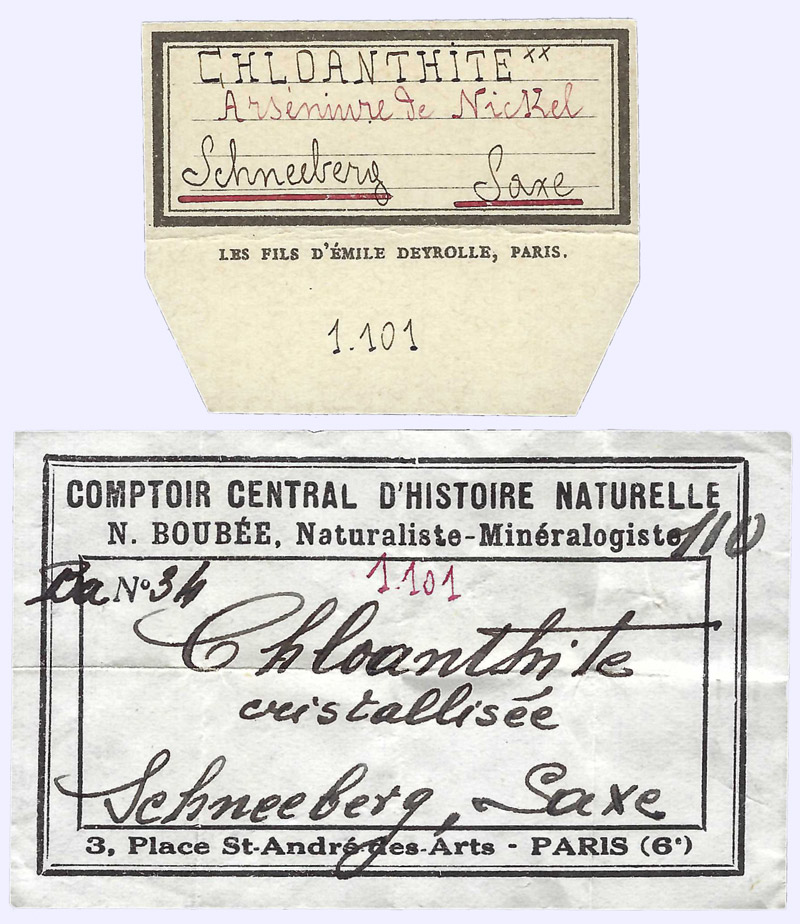 CHLOANTHITE xx
Arséniure de Nickel
Schneeberg Saxe
LES FILS D'ÉMILE DEYROLLE, PARIS.
1.101
COMPTOIR CENTRAL D'HISTOIRE NATURELLE
N. BOUBÉE, Naturaliste-Minéralogiste
110
Ba No 34
1.101
Chloanthite
cristallisée
Schneeberg, Saxe
3, Place St-André-des-Arts - PARIS (6e)